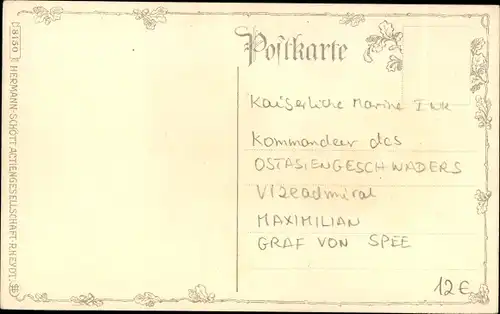 8150
HERMANN-SCHÖTT ACTIENGESELLSCHAFT·RHEYDT.
Postkarte
Kaiserliche Marine I WK
Kommandeur des
OSTASIENGESCHWADERS
Vizeadmiral
MAXIMILIAN
GRAF VON SPEE
12€